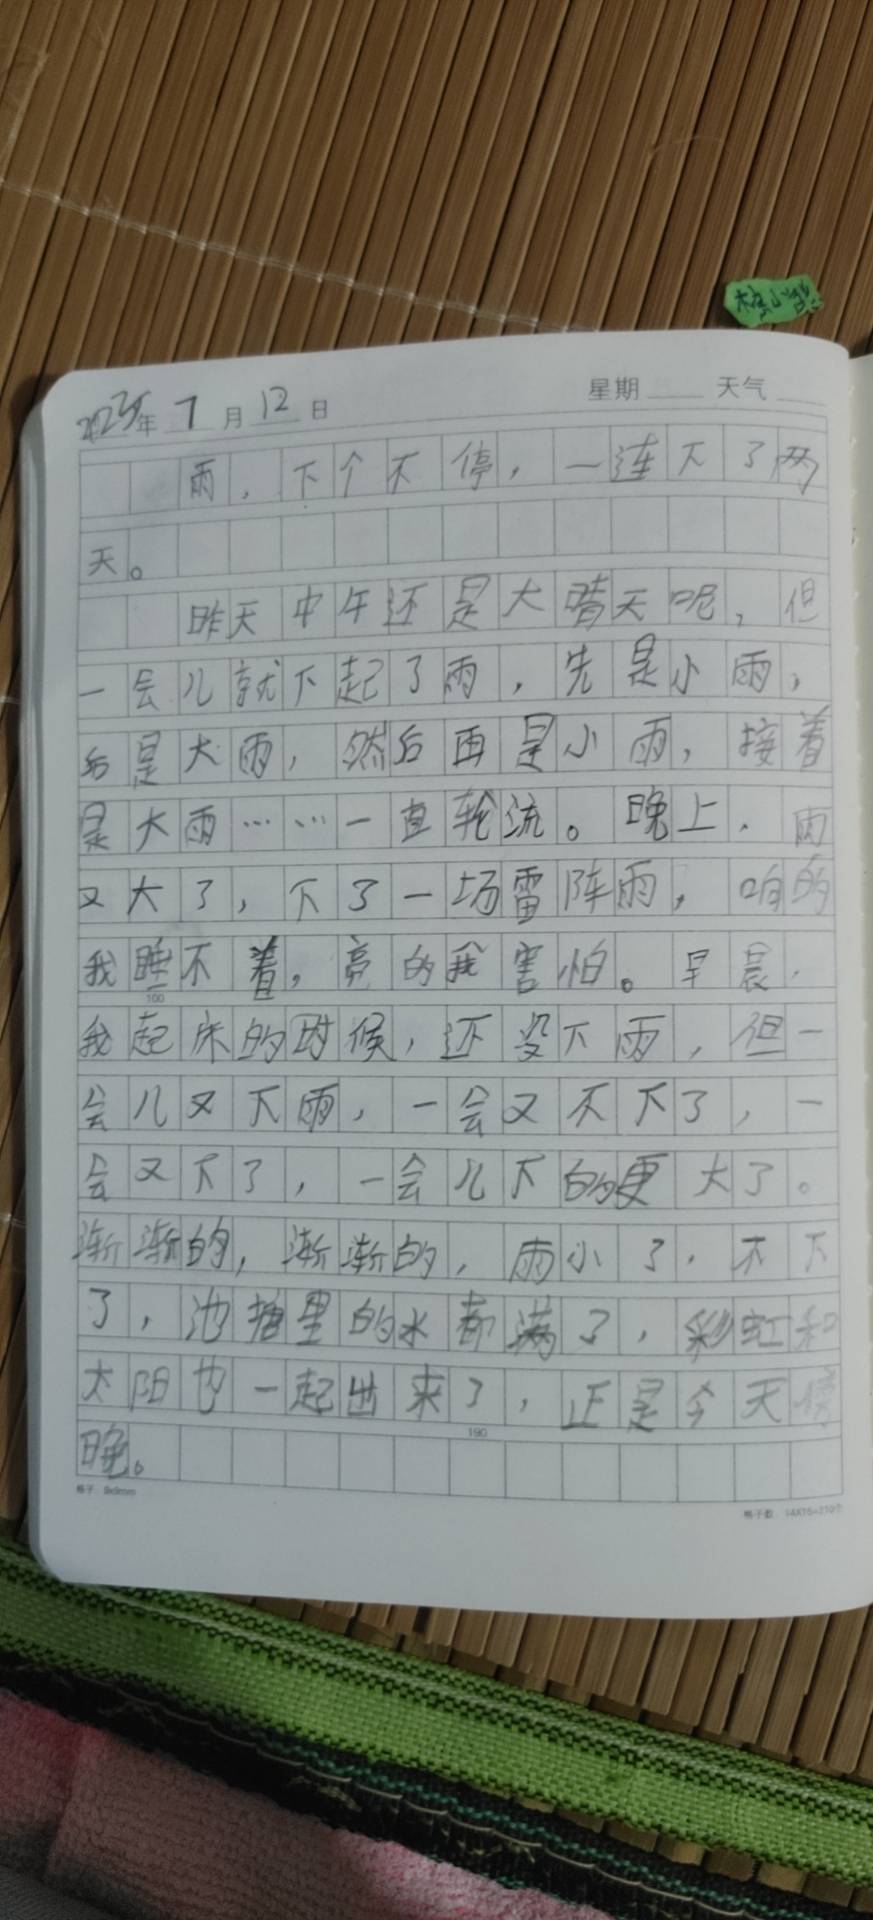 2025年7月12日 星期 天气
雨,下个不停,一连下了两
天。
昨天中午还是大晴天呢,但
一会儿就下起了雨,先是小雨,
后是大雨,然后再是小雨,接着
是大雨……一直轮流。晚上,雨
又大了,下了一场雷阵雨,响的
我睡不着,亮的我害怕。早晨,
我起床的时候,还没下雨,但一
会儿又下雨,一会又不下了,一
会又下了,一会儿下的更大了。
渐渐的,渐渐的,雨小了,不下
了,池塘里的水都满了,彩虹和
太阳也一起出来了,正是今天傍
晚。
100
190
格子:9x9mm
格子数:14X15=210个